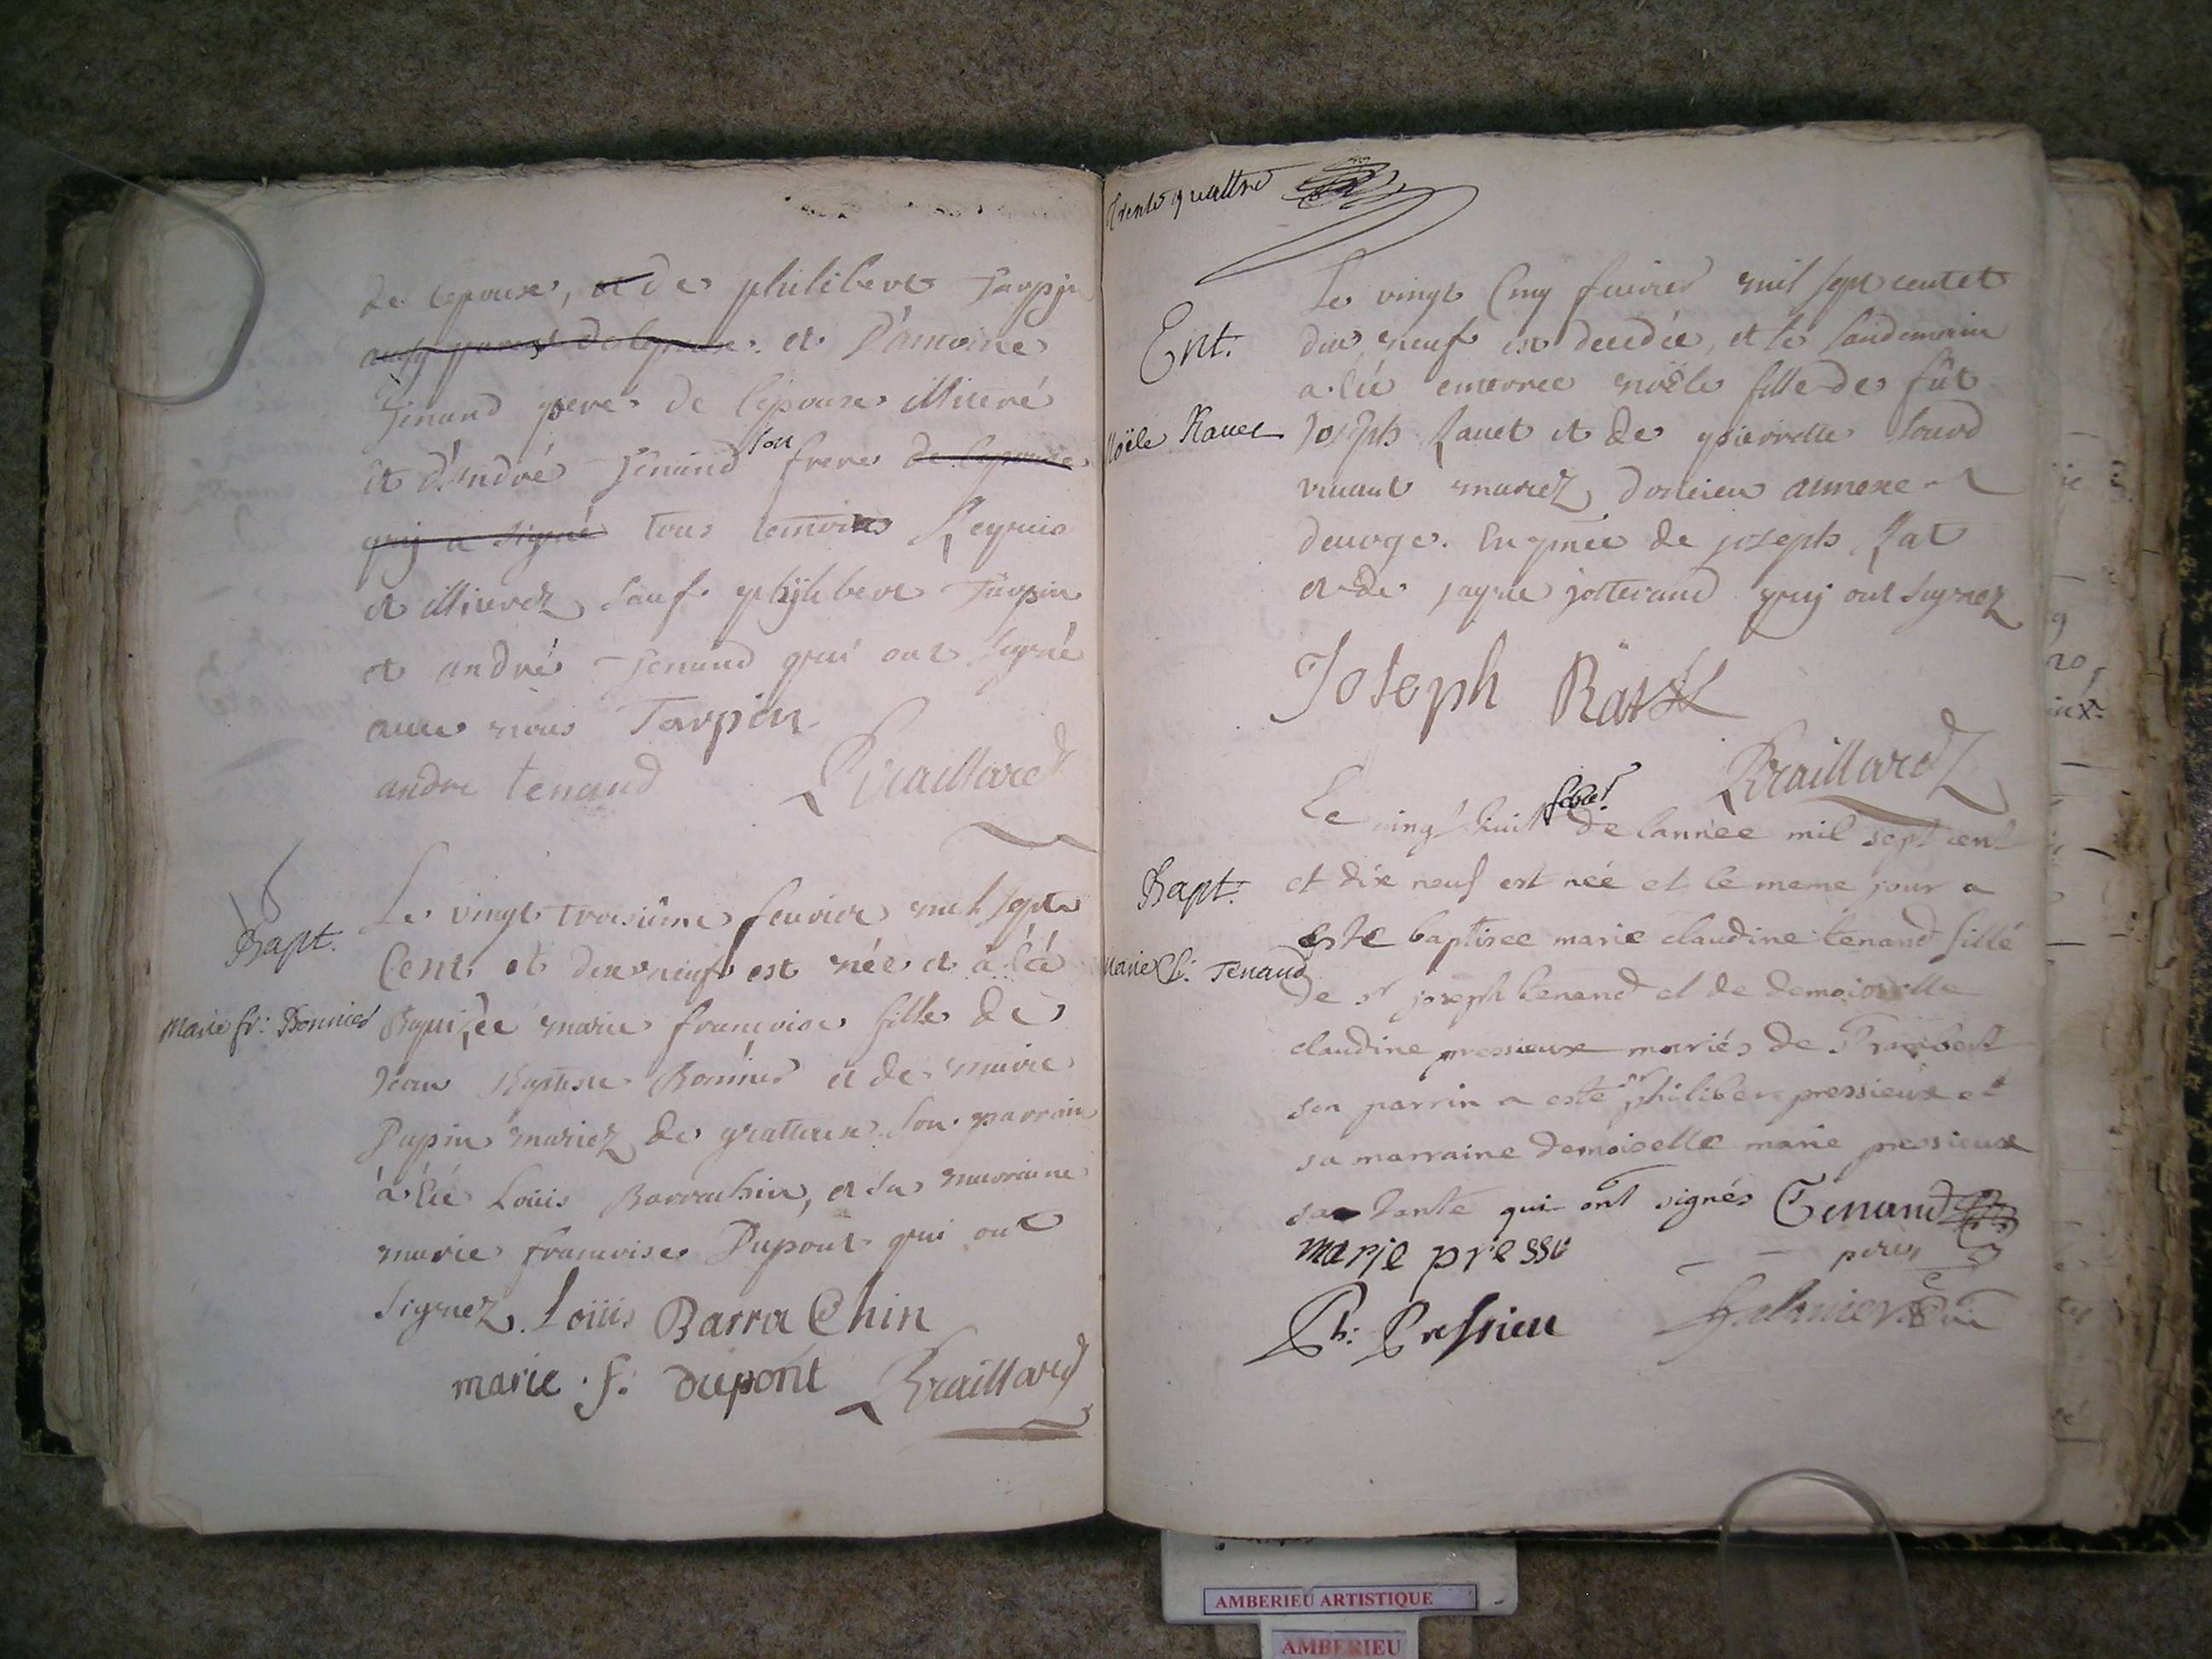 de lepouse, et de philibert Tarpin
aussy parent de lepouse et D'antoine
Tenand pere de l'epouse illiteré
et d'André Tenand son frere de lepouse
quj a signé tous temoins Requis
et illiterez sauf philibert Tarpin
et andré Tenand qui ont signé
auec nous Tarpin
andre tenand Braillard
Bapt.
Marie fr: Bonnier
Le vingt troisiême feurier mil sept
Cent et dix neuf est née et à été
Baptisèe marie francoise fille de
Jean Baptiste Bonnier et de marie
Dupin mariez de gratteux son parrain
à été Loüis Barrachin, et sa marraine
marie francoise Dupont qui ont
signez Loüis Barra Chin
marie f. dupont Braillard
Trente quattre
Ent.
Noële Rauet
Le vingt Cinq feurier mil sept cent et
dix neuf est decedée, et le landemain
a été enterree noële fille de fût
Joseph Rauet et de pierrette Sourd
viuant mariez annexe
En pnce de joseph Rat
et de jotterand quj ont signez
Joseph Rat
Braillard
Bapt.
Marie Cl: Tenand
Le vingt huit febr. de lannèe mil sept cent
et dix neuf est née et le meme jour a
este baptisee marie claudine tenand fille
de sr joseph tenand et de demoiselle
claudine pressieux mariés de
son parrin a este sr philiber pressieux et
sa marraine demoiselle marie pressieux
sa tante qui ont signés Tenand
marje pressu pere
Ph: Pressieu
AMBERIEU ARTISTIQUE
AMBERIEU